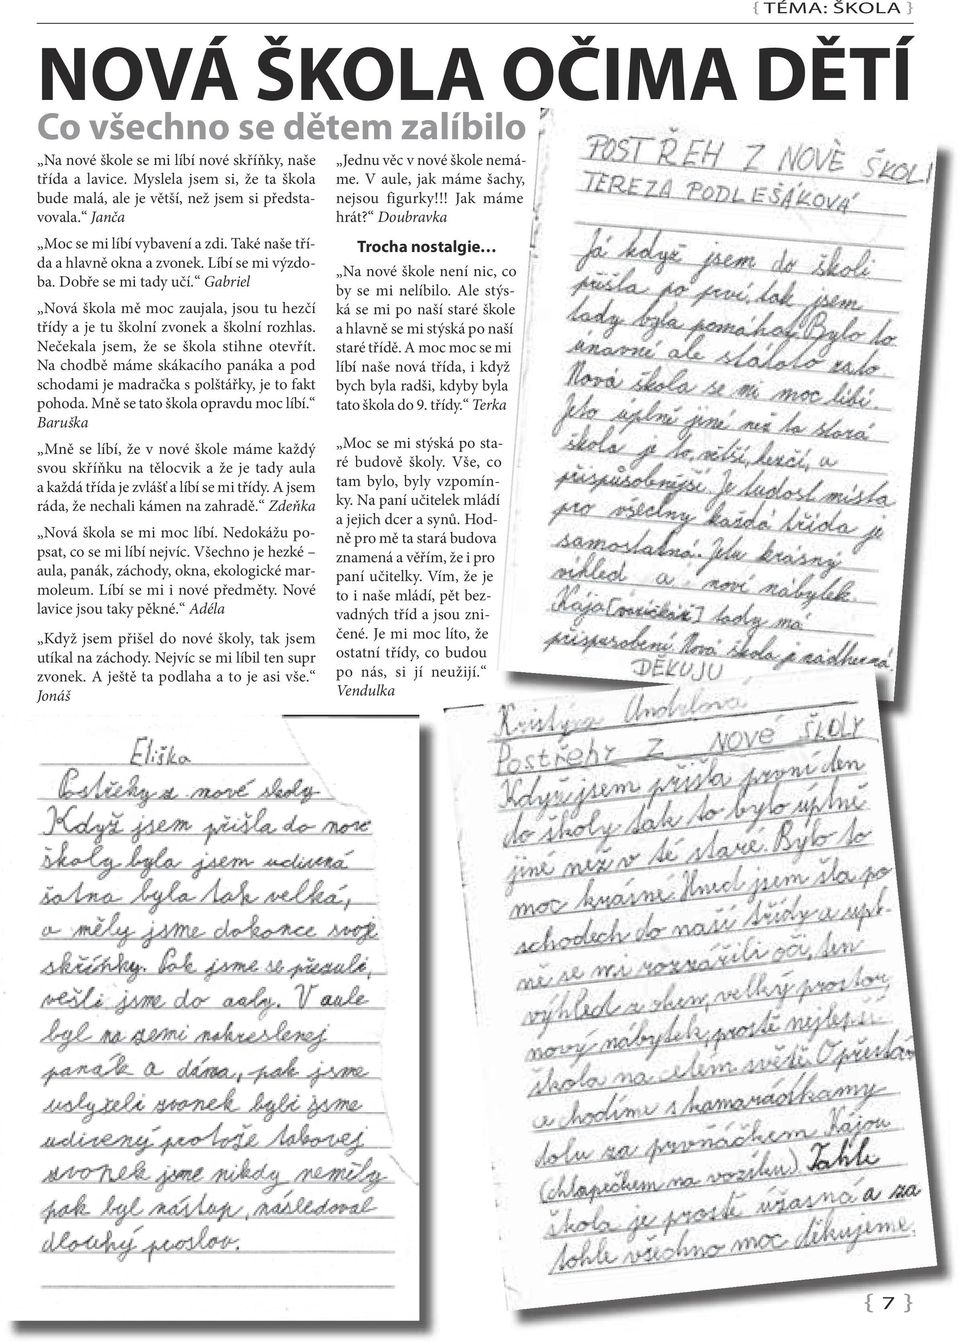 { TÉMA: ŠKOLA }
NOVÁ ŠKOLA OČIMA DĚTÍ
Co všechno se dětem zalíbilo
„Na nové škole se mi líbí nové skříňky, naše
třída a lavice. Myslela jsem si, že ta škola
bude malá, ale je větší, než jsem si předsta-
vovala.“ Janča
„Moc se mi líbí vybavení a zdi. Také naše tří-
da a hlavně okna a zvonek. Líbí se mi výzdo-
ba. Dobře se mi tady učí.“ Gabriel
„Nová škola mě moc zaujala, jsou tu hezčí
třídy a je tu školní zvonek a školní rozhlas.
Nečekala jsem, že se škola stihne otevřít.
Na chodbě máme skákacího panáka a pod
schodami je madračka s polštářky, je to fakt
pohoda. Mně se tato škola opravdu moc líbí.“
Baruška
„Mně se líbí, že v nové škole máme každý
svou skříňku na tělocvik a že je tady aula
a každá třída je zvlášť a líbí se mi třídy. A jsem
ráda, že nechali kámen na zahradě.“ Zdeňka
„Nová škola se mi moc líbí. Nedokážu po-
psat, co se mi líbí nejvíc. Všechno je hezké –
aula, panák, záchody, okna, ekologické mar-
moleum. Líbí se mi i nové předměty. Nové
lavice jsou taky pěkné.“ Adéla
„Když jsem přišel do nové školy, tak jsem
utíkal na záchody. Nejvíc se mi líbil ten supr
zvonek. A ještě ta podlaha a to je asi vše.“
Jonáš
„Jednu věc v nové škole nemá-
me. V aule, jak máme šachy,
nejsou figurky!!! Jak máme
hrát?“ Doubravka
Trocha nostalgie…
„Na nové škole není nic, co
by se mi nelíbilo. Ale stýs-
ká se mi po naší staré škole
a hlavně se mi stýská po naší
staré třídě. A moc moc se mi
líbí naše nová třída, i když
bych byla radši, kdyby byla
tato škola do 9. třídy.“ Terka
„Moc se mi stýská po sta-
ré budově školy. Vše, co
tam bylo, byly vzpomín-
ky. Na paní učitelek mládí
a jejich dcer a synů. Hod-
ně pro mě ta stará budova
znamená a věřím, že i pro
paní učitelky. Vím, že je
to i naše mládí, pět bez-
vadných tříd a jsou zni-
čené. Je mi moc líto, že
ostatní třídy, co budou
po nás, si jí neužijí.“
Vendulka
POSTŘEH Z NOVÉ ŠKOLI
TEREZA PODLEŠÁKOVÁ
Já když jsem do školi
přišla po prví, tak jsem
tady byla pomáhay. Bylo to
únavné ale stáloto zato.
Nová škola se mi moc líbí.
Jeto úplně jiné než ta stará
škola je to, větší, hezčí, a
přispůsobnější. Je tudost místa
pro všechny každá třída je
samostatná. Jetu krásný
vihled a noví nábytek.
Kája [vozíčkář] tady má
přisparobení. Nová škola je nádherná.
DĚKUJU
Eliška
Postřehy z nové školy
Když jsem přišla do nové
školy byla jsem udivená
šatna byla tak velká,
a měly jsme dokonce svoje
skříňky. Pak jsme se přezuli,
vešli jsme do auly. V aule
byl na zemi nakreslenej
panák a dáma, pak jsme
uslyšeli zvonek byli jsme
udivený protože takovej
zvonek jsme nikdy neměly
pak byl nástup, následoval
dlouhý proslov.
Kristýna Andrlová
Postřehy z nové ŠKOLY
Když jsem přišla první den
do školy tak to bylo úplně
jiné než v té staré. Bylo to
moc krásné. Hned jsem šla po
schodech do naší třídy a upl-
ně se mi rozzářili oči, ten
výhled z oken, velký prostor,
nový nábytek, prostě nejlepší
škola na celém světě. O přestáv
ce chodíme s kamarádkamy
dolu za prvňáčkem Kájou
(chlapečkem na vozíku). Tahle
škola je prostě úžasná a za
tohle všechno moc děkujeme.
{ 7 }